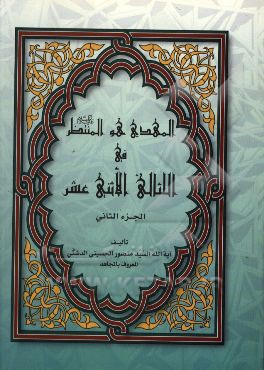 المهدي هو المنتظر
في
اللئالي الأثني عشر
الجزء الثاني
تأليف
آية الله السيد منصور الحسيني الدشتي
المعروف بالمجاهد